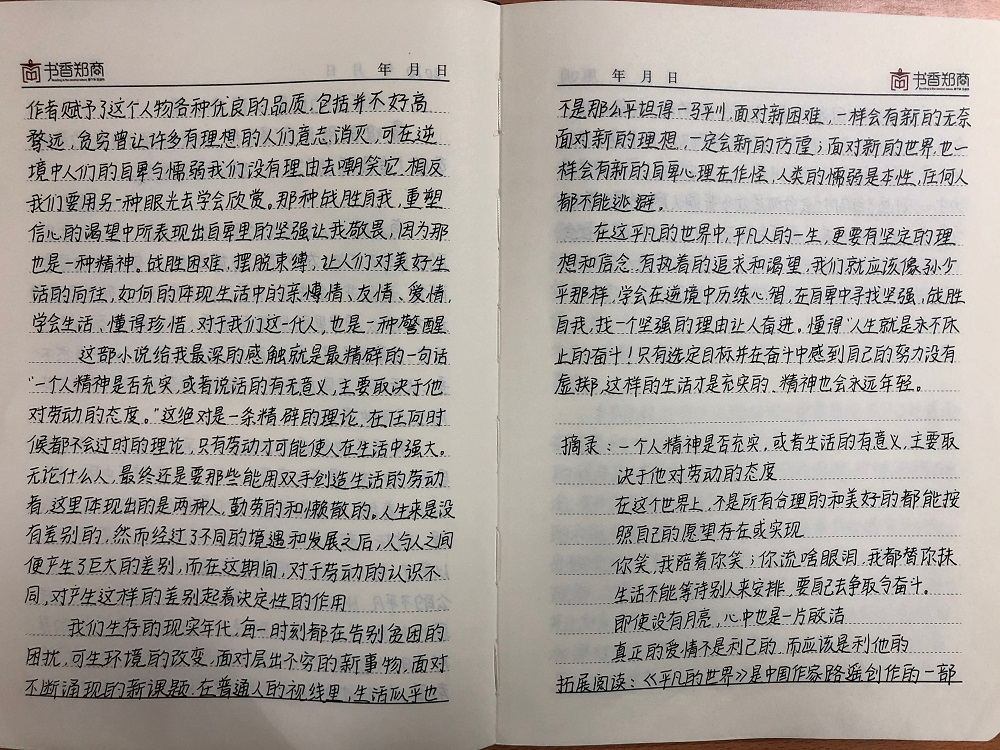 书香郑商
年 月 日
作者赋予了这个人物各种优良的品质,包括并不好高
骛远,贫穷曾让许多有理想的人们意志消灭,可在逆
境中人们的自卑与懦弱我们没有理由去嘲笑它,相反
我们要用另一种眼光去学会欣赏。那种战胜自我,重塑
信心的渴望中所表现出自卑里的坚强让我敬畏,因为那
也是一种精神。战胜困难,摆脱束缚,让人们对美好生
活的向往,如何的体现生活中的亲情、友情、爱情,
学会生活、懂得珍惜,对于我们这一代人,也是一种警醒
这部小说给我最深的感触就是最精辟的一句话
“一个人精神是否充实,或者说活的有无意义,主要取决于他
对劳动的态度。”这绝对是一条精辟的理论,在任何时
候都不会过时的理论,只有劳动才可能使人在生活中强大。
无论什么人,最终还是要那些能用双手创造生活的劳动
者,这里体现出的是两种人,勤劳的和懒散的。人生来是没
有差别的,然而经过了不同的境遇和发展之后,人与人之间
便产生了巨大的差别,而在这期间,对于劳动的认识不
同,对产生这样的差别起着决定性的作用
我们生存的现实年代,每一时刻都在告别贫困的
困扰,可生环境的改变,面对层出不穷的新事物,面对
不断涌现的新课题,在普通人的视线里,生活似乎也
年 月 日
书香郑商
不是那么平坦得一马平川,面对新困难,一样会有新的无奈
面对新的理想,一定会新的彷徨;面对新的世界,也一
样会有新的自卑心理在作怪,人类的懦弱是本性,任何人
都不能逃避。
在这平凡的世界中,平凡人的一生,更要有坚定的理
想和信念,有执着的追求和渴望,我们就应该像孙少
平那样,学会在逆境中历练心智,在自卑中寻找坚强,战胜
自我,找一个坚强的理由让人奋进。懂得“人生就是永不休
止的奋斗!只有选定目标并在奋斗中感到自己的努力没有
虚掷,这样的生活才是充实的,精神也会永远年轻。
摘录:一个人精神是否充实,或者生活的有意义,主要取
决于他对劳动的态度
在这个世界上,不是所有合理的和美好的都能按
照自己的愿望存在或实现
你笑,我陪着你笑;你流啥眼泪,我都替你抹
生活不能等待别人来安排,要自己去争取令奋斗。
即使没有月亮,心中也是一片皎洁
真正的爱情不是利己的,而应该是利他的
拓展阅读:《平凡的世界》是中国作家路遥创作的一部